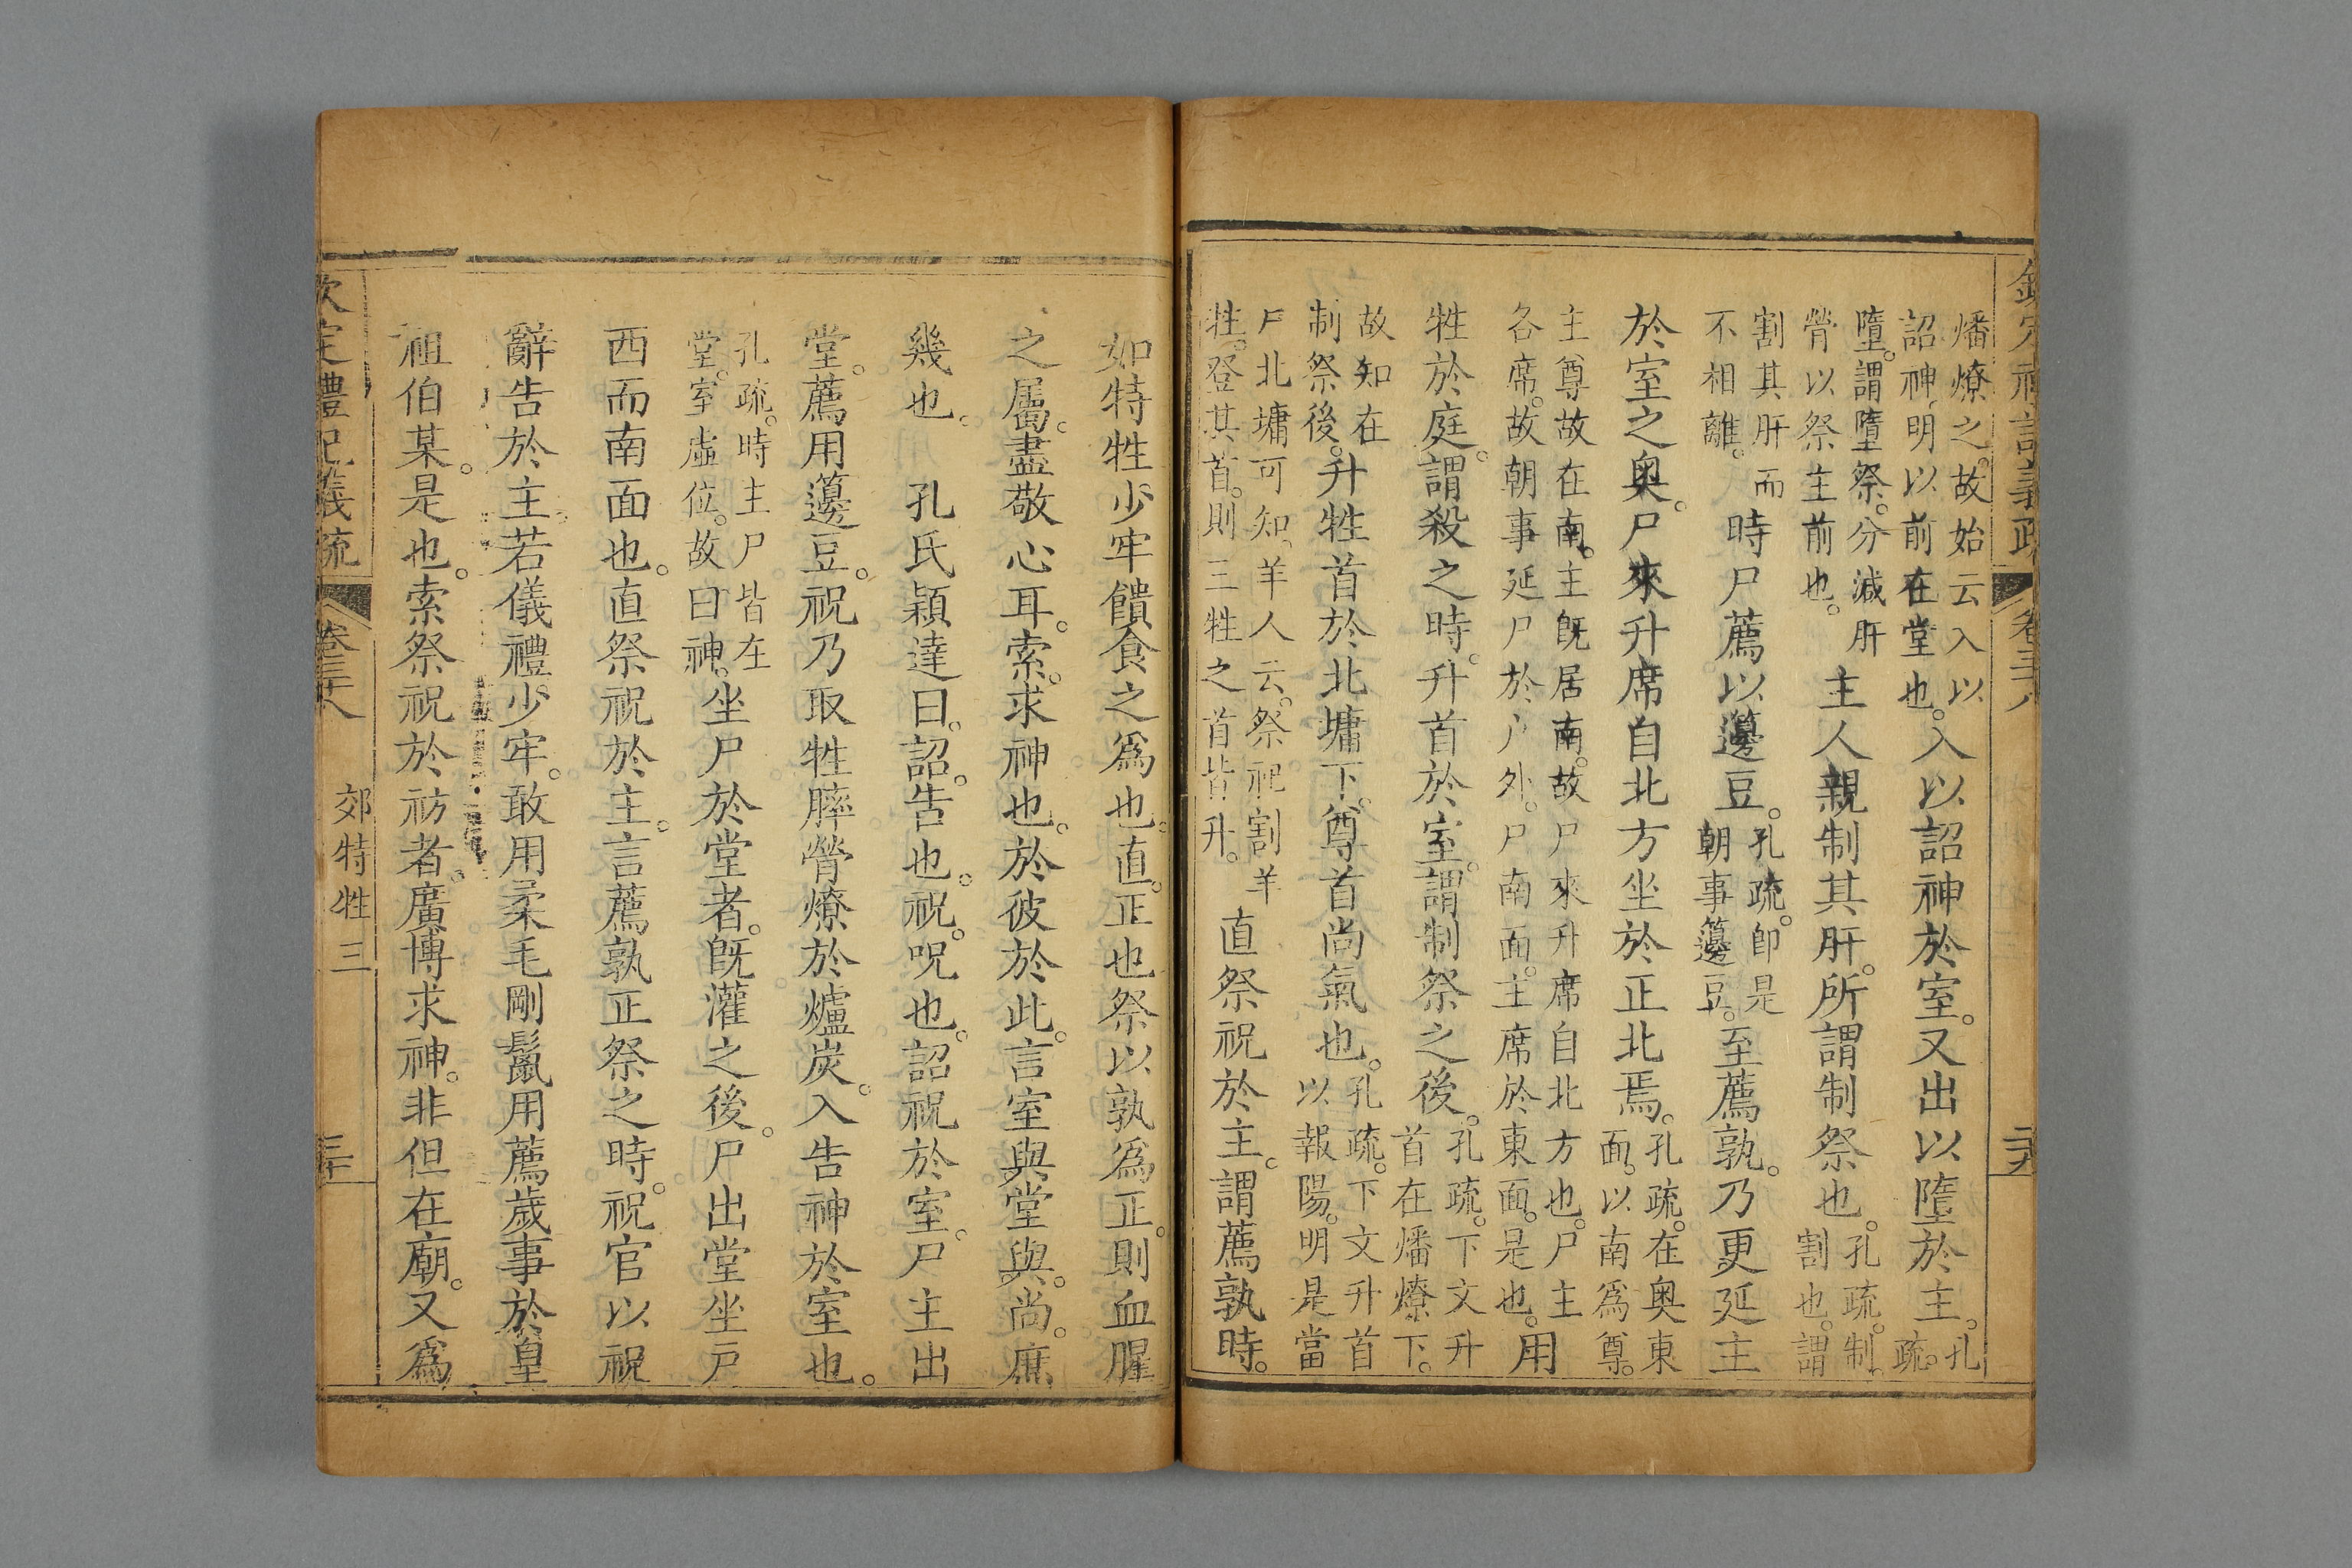 欽定禮記義疏 卷三十八 二九
燔燎之。故始云入以
詔神。明以前在堂也。
入以詔神於室。又出以墮於主。
孔
疏。
墮。謂墮祭。分減肝
膋以祭主前也。
主人親制其肝。所謂制祭也。
孔疏。制。
割也。謂
割其肝而
不相離。
時尸薦以籩豆。
孔疏。卽是
朝事籩豆。
至薦孰。乃更延主
於室之奥。尸來升席自北方坐於正北焉。
孔疏。在奥東
面。以南爲尊。
主尊故在南。主旣居南。故尸來升席自北方也。尸主
各席。故朝事延尸於户外。尸南面。主席於東面。是也。
用
牲於庭。謂殺之時。升首於室。謂制祭之後。
孔疏。下文升
首在燔燎下。
故知在
制祭後。
升牲首於北墉下。尊首尚氣也。
孔疏。下文升首
以報陽。明是當
戶北墉可知。羊人云。祭祀割羊
牲。登其首。則三牲之首皆升。
直祭祝於主。謂薦孰時。
如特牲少牢饋食之爲也。直。正也祭以孰爲正。則血腥
之屬。盡敬心耳。索。求神也。於彼於此。言室與堂與。尚。庶
幾也。 孔氏穎達曰。詔。告也。祝。呪也。詔祝於室。尸主出
堂。薦用籩豆。祝乃取牲膟膋燎於爐炭。入告神於室也。
孔疏。時主尸皆在
堂。室虛位。故曰神。
坐尸於堂者。旣灌之後。尸出堂坐戶
西而南面也。直祭祝於主。言薦孰正祭之時。祝官以祝
辭告於主。若儀禮少牢。敢用柔毛剛鬣用薦歲事於皇
祖伯某。是也。索祭祝於祊者。廣博求神。非但在廟。又爲
欽定禮記義疏 卷三十八 郊特牲三 三十